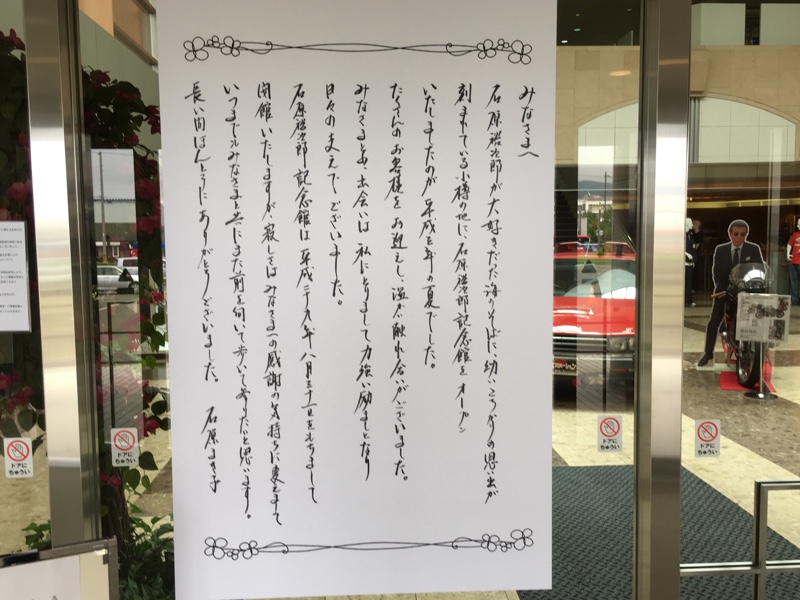 みなさまへ
石原裕次郎が大好きだった海のそばに、幼いころからの思い出が
刻まれている小樽の地に、石原裕次郎記念館をオープン
いたしましたのが、平成三年の夏でした。
たくさんのお客様をお迎えし、温かな触れ合いがございました。
みなさまとの出会いは、私にとりまして力強い励ましとなり
日々の支えでございました。
石原裕次郎記念館は、平成二十九年八月三十一日をもちまして
閉館いたしますが、寂しさはみなさまへの感謝の気持ちに変えまして
いつまでもみなさまと共にまた前を向いて歩いて参りたいと思います。
長い間ほんとうにありがとうございました。 石原まき子
ドアに
ちゅうい
ドアに
ちゅうい
ドアに
ちゅうい
ドアに
ちゅうい